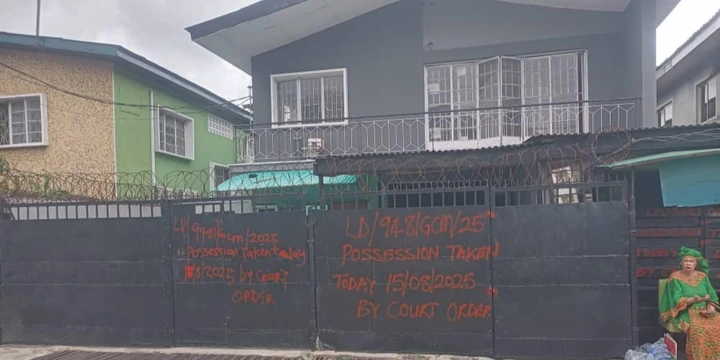 LD/9981/GCM/2025
Possession Taken today
15/8/2025 by COURT
ORDER
LD/9481/GCM/25"
POSSESSION TAKEN
TODAY 15/08/2025
BY COURT ORDER